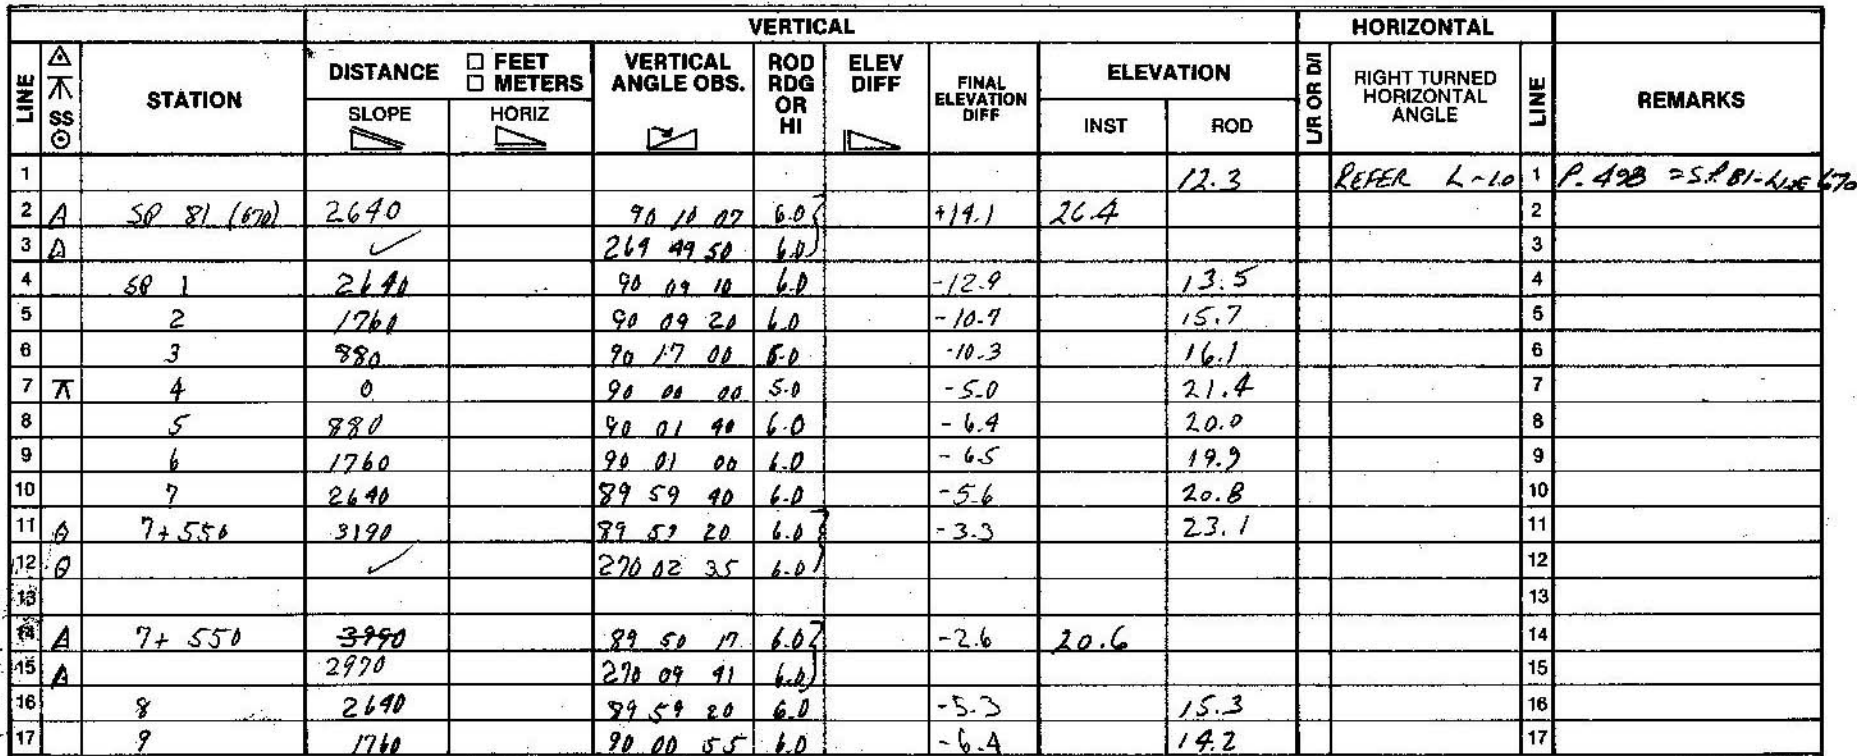 VERTICAL HORIZONTAL
LINE SS STATION DISTANCE □ FEET □ METERS VERTICAL ANGLE OBS. ROD RDG OR HI ELEV DIFF FINAL ELEVATION DIFF ELEVATION L/R OR D/I RIGHT TURNED HORIZONTAL ANGLE LINE REMARKS
SLOPE HORIZ INST ROD
1 12.3 REFER L-10 1 P. 498 = S.P. 81-LINE 670
2 SP 81 (670) 2640 90 10 07 6.0 +14.1 26.4 2
3 ✓ 269 49 50 6.0 3
4 SP 1 2640 90 09 10 6.0 -12.9 13.5 4
5 2 1760 90 09 20 6.0 -10.7 15.7 5
6 3 880 90 17 00 6.0 -10.3 16.1 6
7 4 0 90 00 00 5.0 -5.0 21.4 7
8 5 880 90 01 40 6.0 -6.4 20.0 8
9 6 1760 90 01 00 6.0 -6.5 19.9 9
10 7 2640 89 59 40 6.0 -5.6 20.8 10
11 7+550 3190 89 57 20 6.0 -3.3 23.1 11
12 ✓ 270 02 35 6.0 12
13 13
14 7+550 89 50 17 6.0 -2.6 20.6 14
15 2970 270 09 41 6.0 15
16 8 2640 89 59 20 6.0 -5.3 15.3 16
17 9 1760 90 00 55 6.0 -6.4 14.2 17